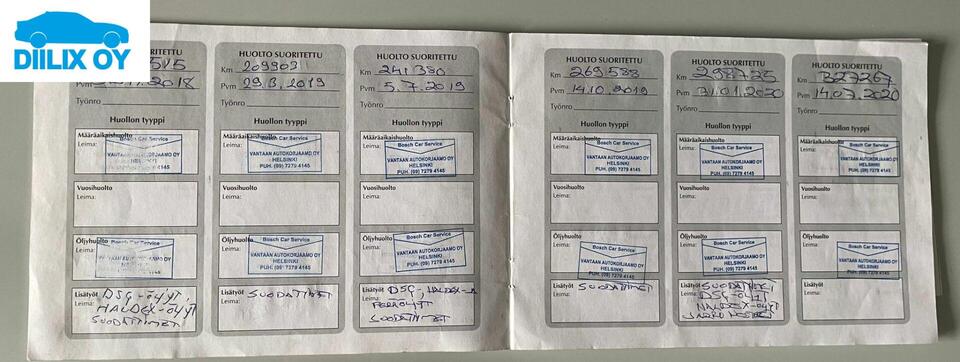 DIILIX OY
HUOLTO SUORITETTU
Pvm 2018
Työnro
Huollon tyyppi
Määräaikaishuolto
Leima:
Bosch Car Service
VANTAAN AUTOKORJAAMO OY
HELSINKI
PUH. (09) 7279 4145
Vuosihuolto
Leima:
Öljyhuolto
Leima:
Bosch Car Service
VANTAAN AUTOKORJAAMO OY
HELSINKI
Lisätyöt
Leima:
DSG-ÖLJYT,
HALDEX-ÖLJYT
SUODATTIMET
HUOLTO SUORITETTU
Km 209303
Pvm 29.3.2019
Työnro
Huollon tyyppi
Määräaikaishuolto
Leima:
Bosch Car Service
VANTAAN AUTOKORJAAMO OY
HELSINKI
PUH. (09) 7279 4145
Vuosihuolto
Leima:
Öljyhuolto
Leima:
Bosch Car Service
VANTAAN AUTOKORJAAMO OY
HELSINKI
PUH. (09) 7279 4145
Lisätyöt
Leima:
SUODATTIMET
HUOLTO SUORITETTU
Km 241380
Pvm 5.7.2019
Työnro
Huollon tyyppi
Määräaikaishuolto
Leima:
Bosch Car Service
VANTAAN AUTOKORJAAMO OY
HELSINKI
PUH. (09) 7279 4145
Vuosihuolto
Leima:
Öljyhuolto
Leima:
Bosch Car Service
VANTAAN AUTOKORJAAMO OY
HELSINKI
PUH. (09) 7279 4145
Lisätyöt
Leima:
DSG-, HALDEX- JA
PERÄÖLJYT
SUODATTIMET
HUOLTO SUORITETTU
Km 269588
Pvm 14.10.2019
Työnro
Huollon tyyppi
Määräaikaishuolto
Leima:
Bosch Car Service
VANTAAN AUTOKORJAAMO OY
HELSINKI
PUH. (09) 7279 4145
Vuosihuolto
Leima:
Öljyhuolto
Leima:
Bosch Car Service
VANTAAN AUTOKORJAAMO OY
HELSINKI
PUH. (09) 7279 4145
Lisätyöt
Leima:
SUODATTIMET
HUOLTO SUORITETTU
Km 298725
Pvm 31.01.2020
Työnro
Huollon tyyppi
Määräaikaishuolto
Leima:
Bosch Car Service
VANTAAN AUTOKORJAAMO OY
HELSINKI
PUH. (09) 7279 4145
Vuosihuolto
Leima:
Öljyhuolto
Leima:
Bosch Car Service
VANTAAN AUTOKORJAAMO OY
HELSINKI
PUH. (09) 7279 4145
Lisätyöt
Leima:
SUODATTIMET
DSG-ÖLJYT
HALDEX-ÖLJYT
HUOLTO SUORITETTU
Km 327267
Pvm 14.07.2020
Työnro
Huollon tyyppi
Määräaikaishuolto
Leima:
Bosch Car Service
VANTAAN AUTOKORJAAMO OY
HELSINKI
PUH. (09) 7279 4145
Vuosihuolto
Leima:
Öljyhuolto
Leima:
Bosch Car Service
VANTAAN AUTOKORJAAMO OY
HELSINKI
PUH. (09) 7279 4145
Lisätyöt
Leima: